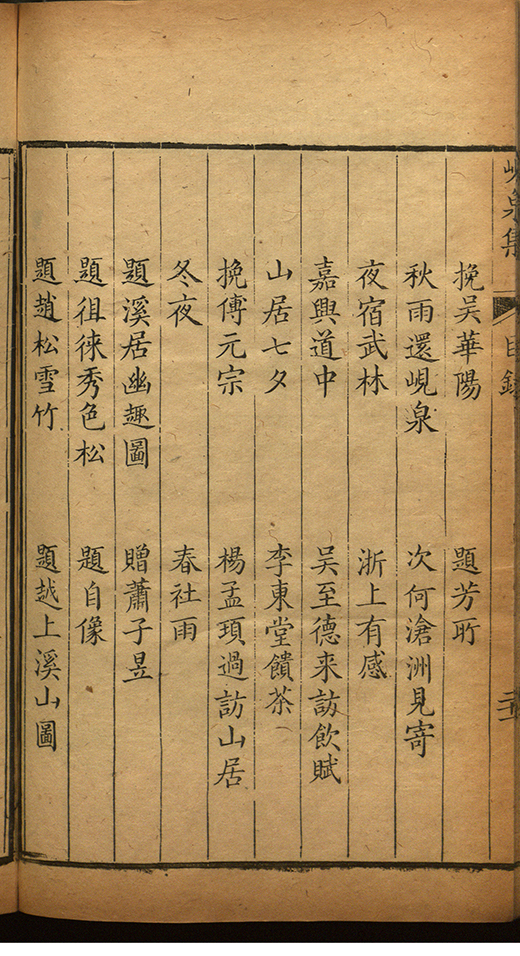 峴泉集 目錄
挽吳華陽 題芳所
秋雨還峴泉 次何滄洲見寄
夜宿武林 浙上有感
嘉興道中 吳至德來訪飲賦
山居七夕 李東堂饋茶
挽傅元宗 楊孟頊過訪山居
冬夜 春社雨
題溪居幽趣圖 贈蕭子昱
題徂徠秀色松 題自像
題趙松雪竹 題越上溪山圖